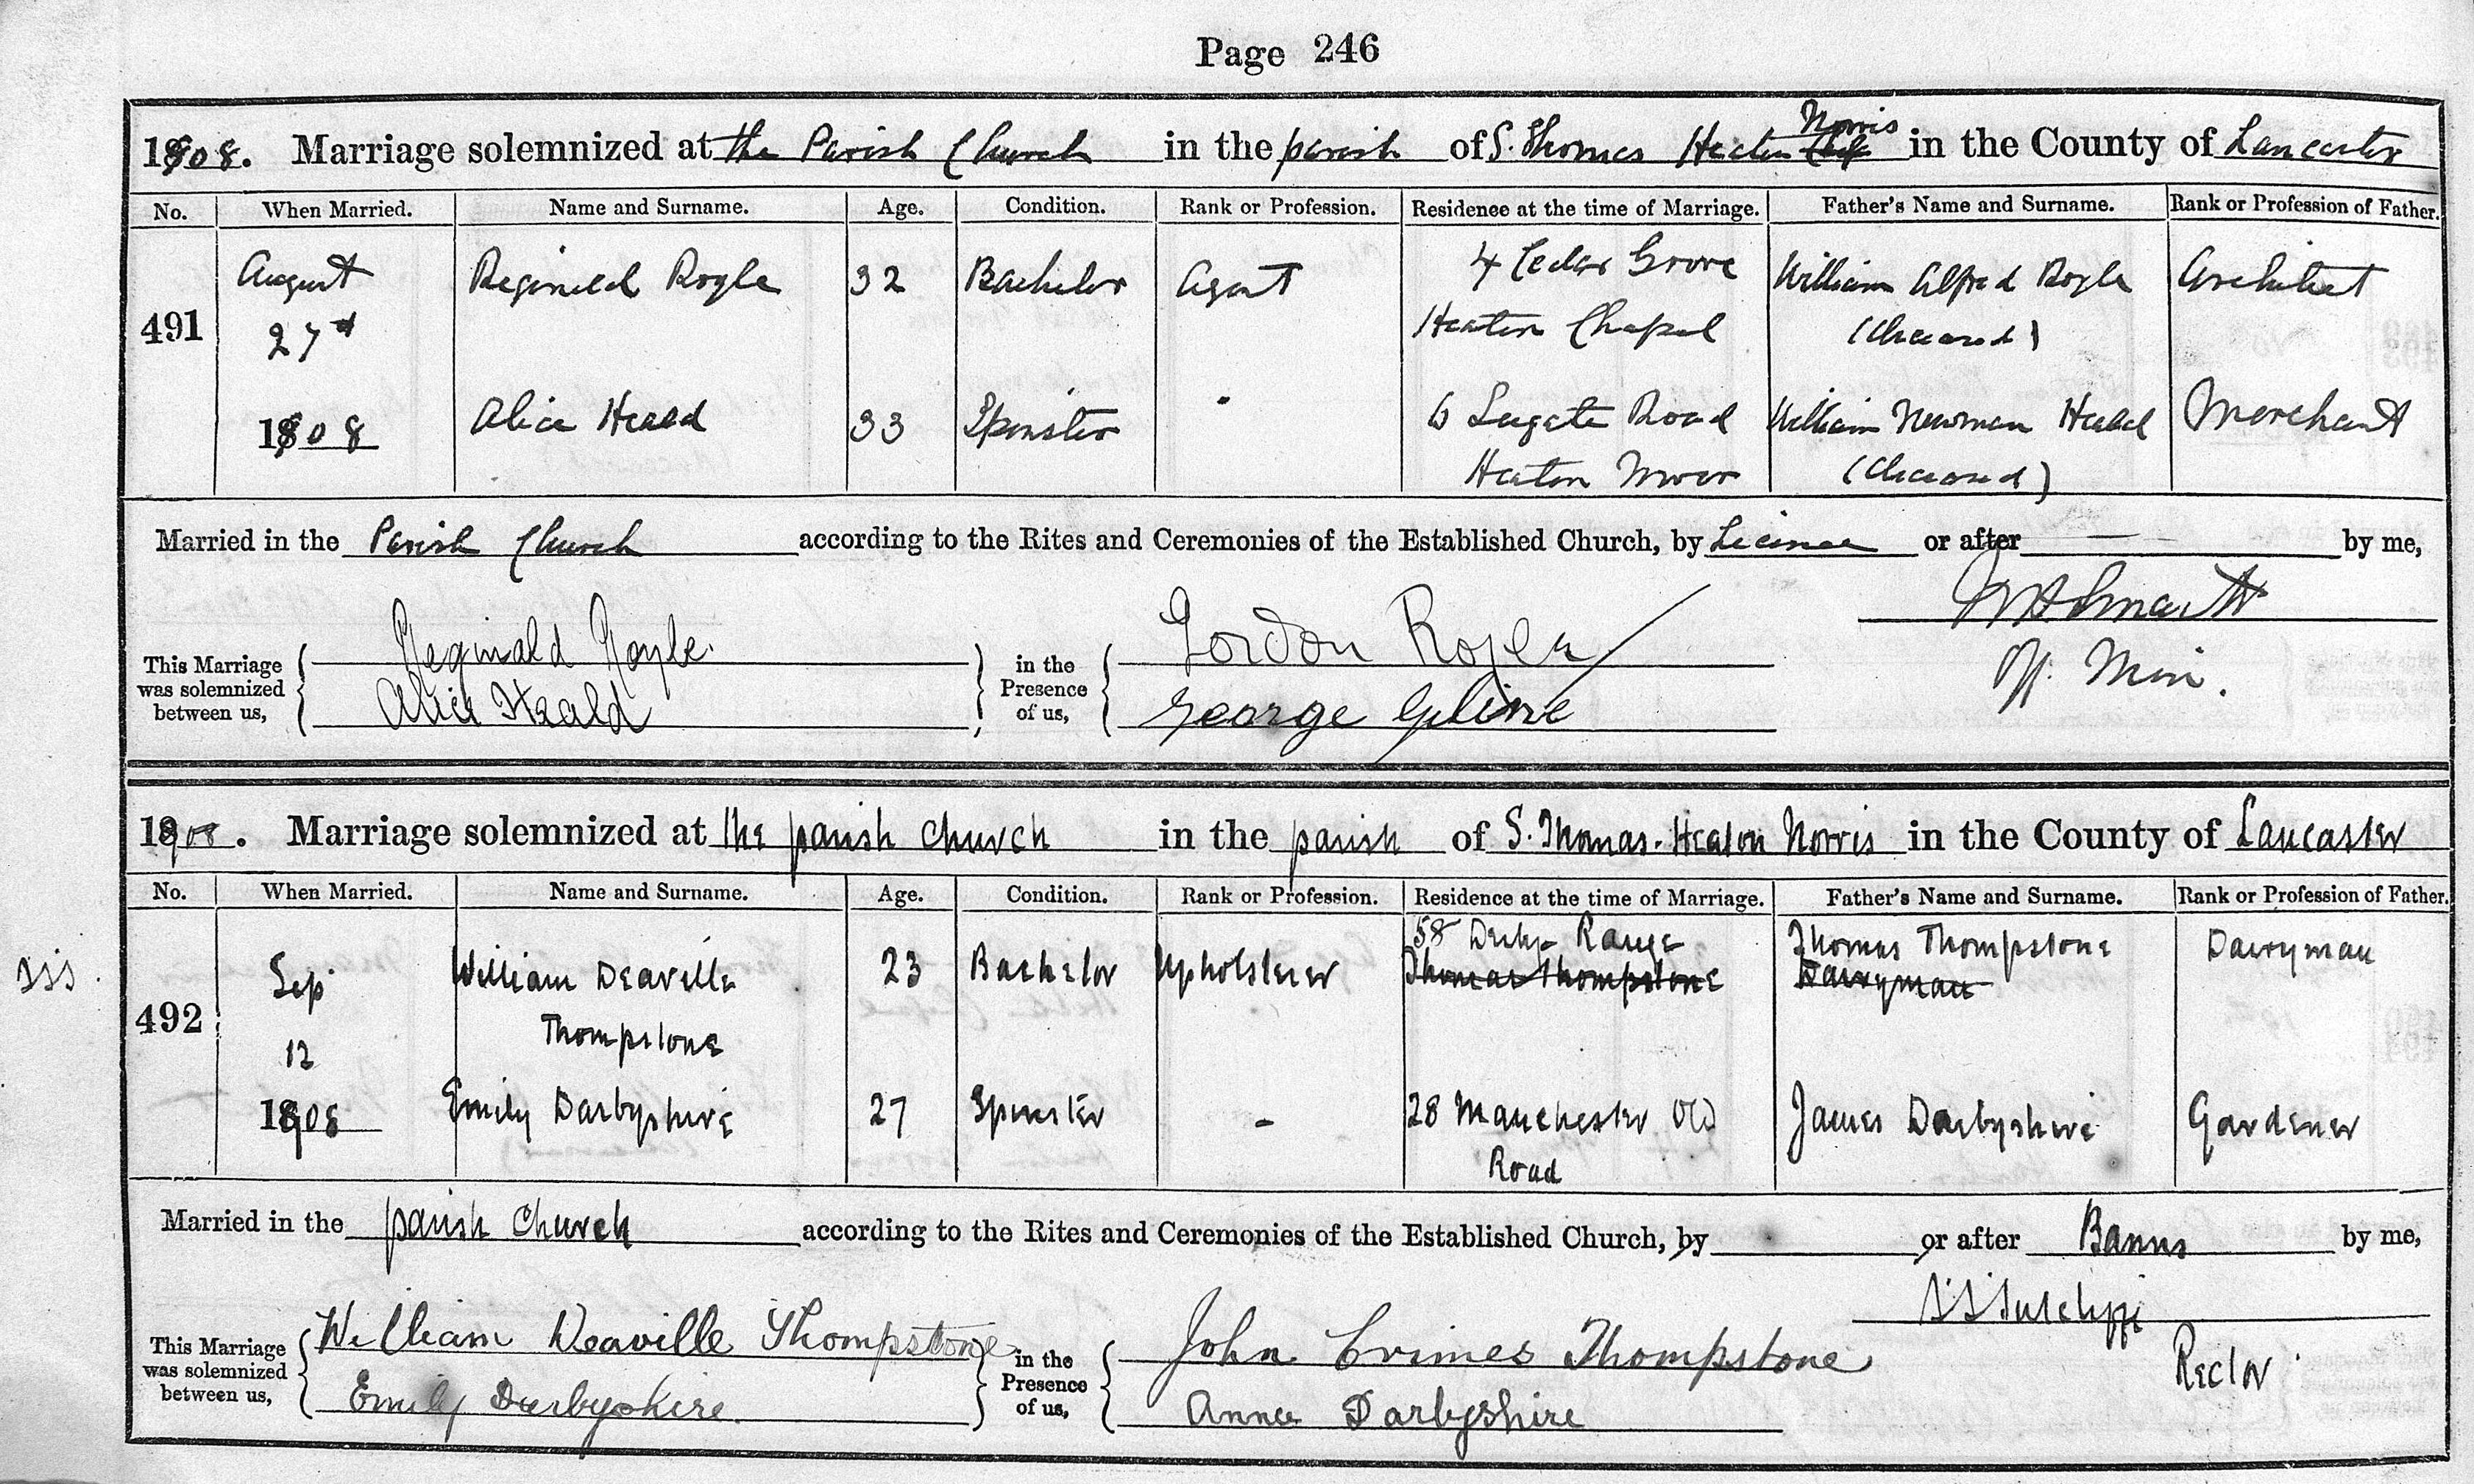 Page 246
1908. Marriage solemnized at the Parish Church in the parish of S. Thomas Heaton Norris in the County of Lancaster
No. When Married. Name and Surname. Age. Condition. Rank or Profession. Residence at the time of Marriage. Father's Name and Surname. Rank or Profession of Father.
August Reginald Royle 32 Bachelor Agent 4 Cedar Grove William Alfred Royle Architect
491 27th Heaton Chapel (deceased)
1908 Alice Heald 33 Spinster 6 Leegate Road William Newman Heald Merchant
Heaton Moor (deceased)
Married in the Parish Church according to the Rites and Ceremonies of the Established Church, by Licence or after — by me,
This Marriage was solemnized between us, Reginald Royle. in the Presence of us, Gordon Royle
Alice Heald George Cline
Off. Min.
1908. Marriage solemnized at the parish church in the parish of S. Thomas. Heaton Norris in the County of Lancaster
No. When Married. Name and Surname. Age. Condition. Rank or Profession. Residence at the time of Marriage. Father's Name and Surname. Rank or Profession of Father.
58 Derby Range
Sep William Deaville 23 Bachelor Upholsterer Thomas Thompstone Thomas Thompstone Dairyman
Dairyman
492 12 Thompstone
1908 Emily Darbyshire 27 Spinster - 28 Manchester Old James Darbyshire Gardener
Road
Married in the parish church according to the Rites and Ceremonies of the Established Church, by or after Banns by me,
SSSutcliffe
This Marriage was solemnized between us, William Deaville Thompstone in the Presence of us, John Crimes Thompstone
Rector
Emily Darbyshire. Annie Darbyshire